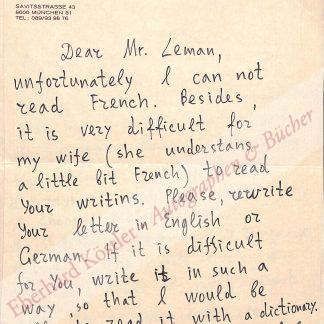 SAVITSSTRASSE 43
8000 MÜNCHEN 81
TEL.: 089/93 98 76
Dear Mr. Leman,
unfortunately I can not
read French. Besides,
it is very difficult for
my wife (she understans
a little bit French) to read
Your writins. Please, rewrite
Your letter in English or
German. If it is difficult
for You, write it in such a
way, so that I would be
to read it with a dictionary.
Eberhard Köstler Autographen & Bücher